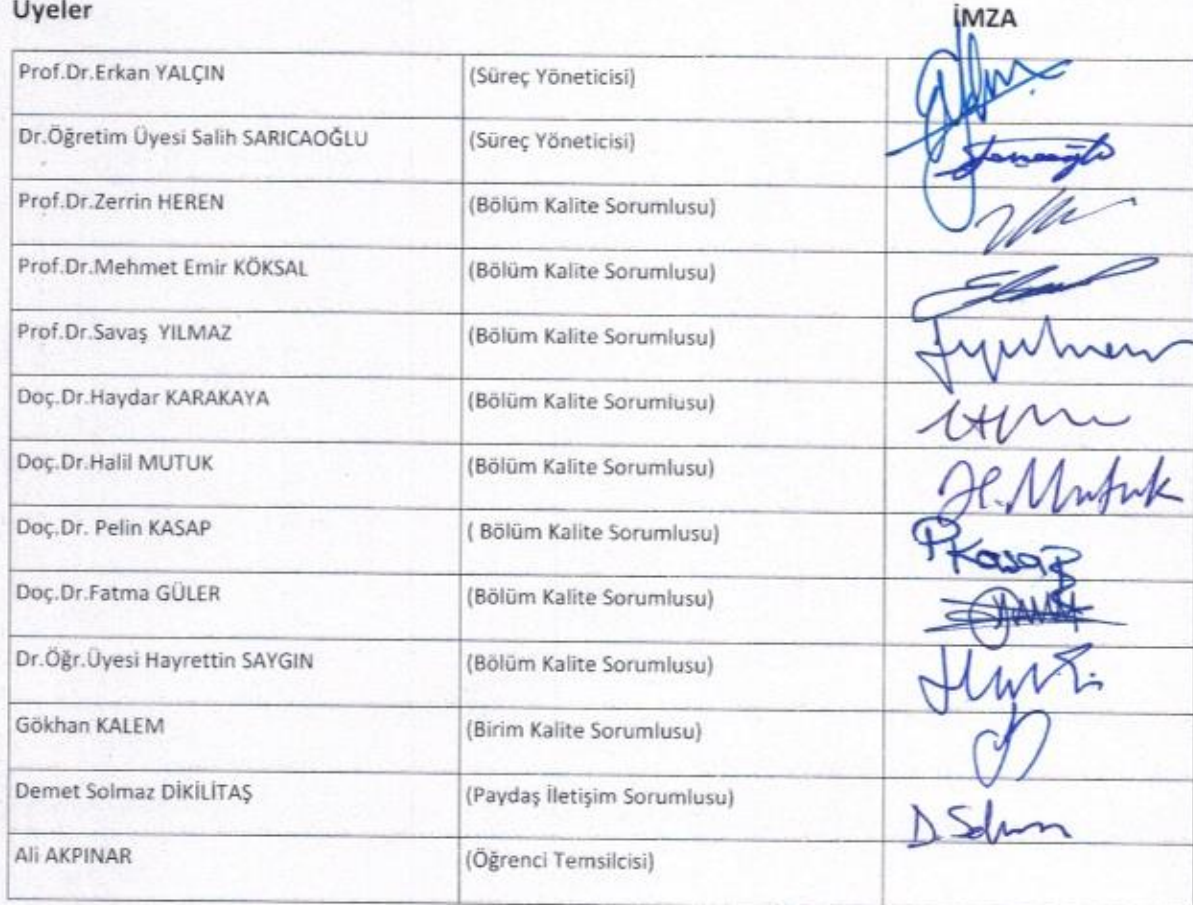 Üyeler İMZA
Prof.Dr.Erkan YALÇIN (Süreç Yöneticisi)
Dr.Öğretim Üyesi Salih SARICAOĞLU (Süreç Yöneticisi)
Prof.Dr.Zerrin HEREN (Bölüm Kalite Sorumlusu)
Prof.Dr.Mehmet Emir KÖKSAL (Bölüm Kalite Sorumlusu)
Prof.Dr.Savaş YILMAZ (Bölüm Kalite Sorumlusu)
Doç.Dr.Haydar KARAKAYA (Bölüm Kalite Sorumlusu)
Doç.Dr.Halil MUTUK (Bölüm Kalite Sorumlusu) H.Mutuk
Doç.Dr. Pelin KASAP ( Bölüm Kalite Sorumlusu) PKasap
Doç.Dr.Fatma GÜLER (Bölüm Kalite Sorumlusu)
Dr.Öğr.Üyesi Hayrettin SAYGIN (Bölüm Kalite Sorumlusu)
Gökhan KALEM (Birim Kalite Sorumlusu)
Demet Solmaz DİKİLİTAŞ (Paydaş İletişim Sorumlusu)
Ali AKPINAR (Öğrenci Temsilcisi)